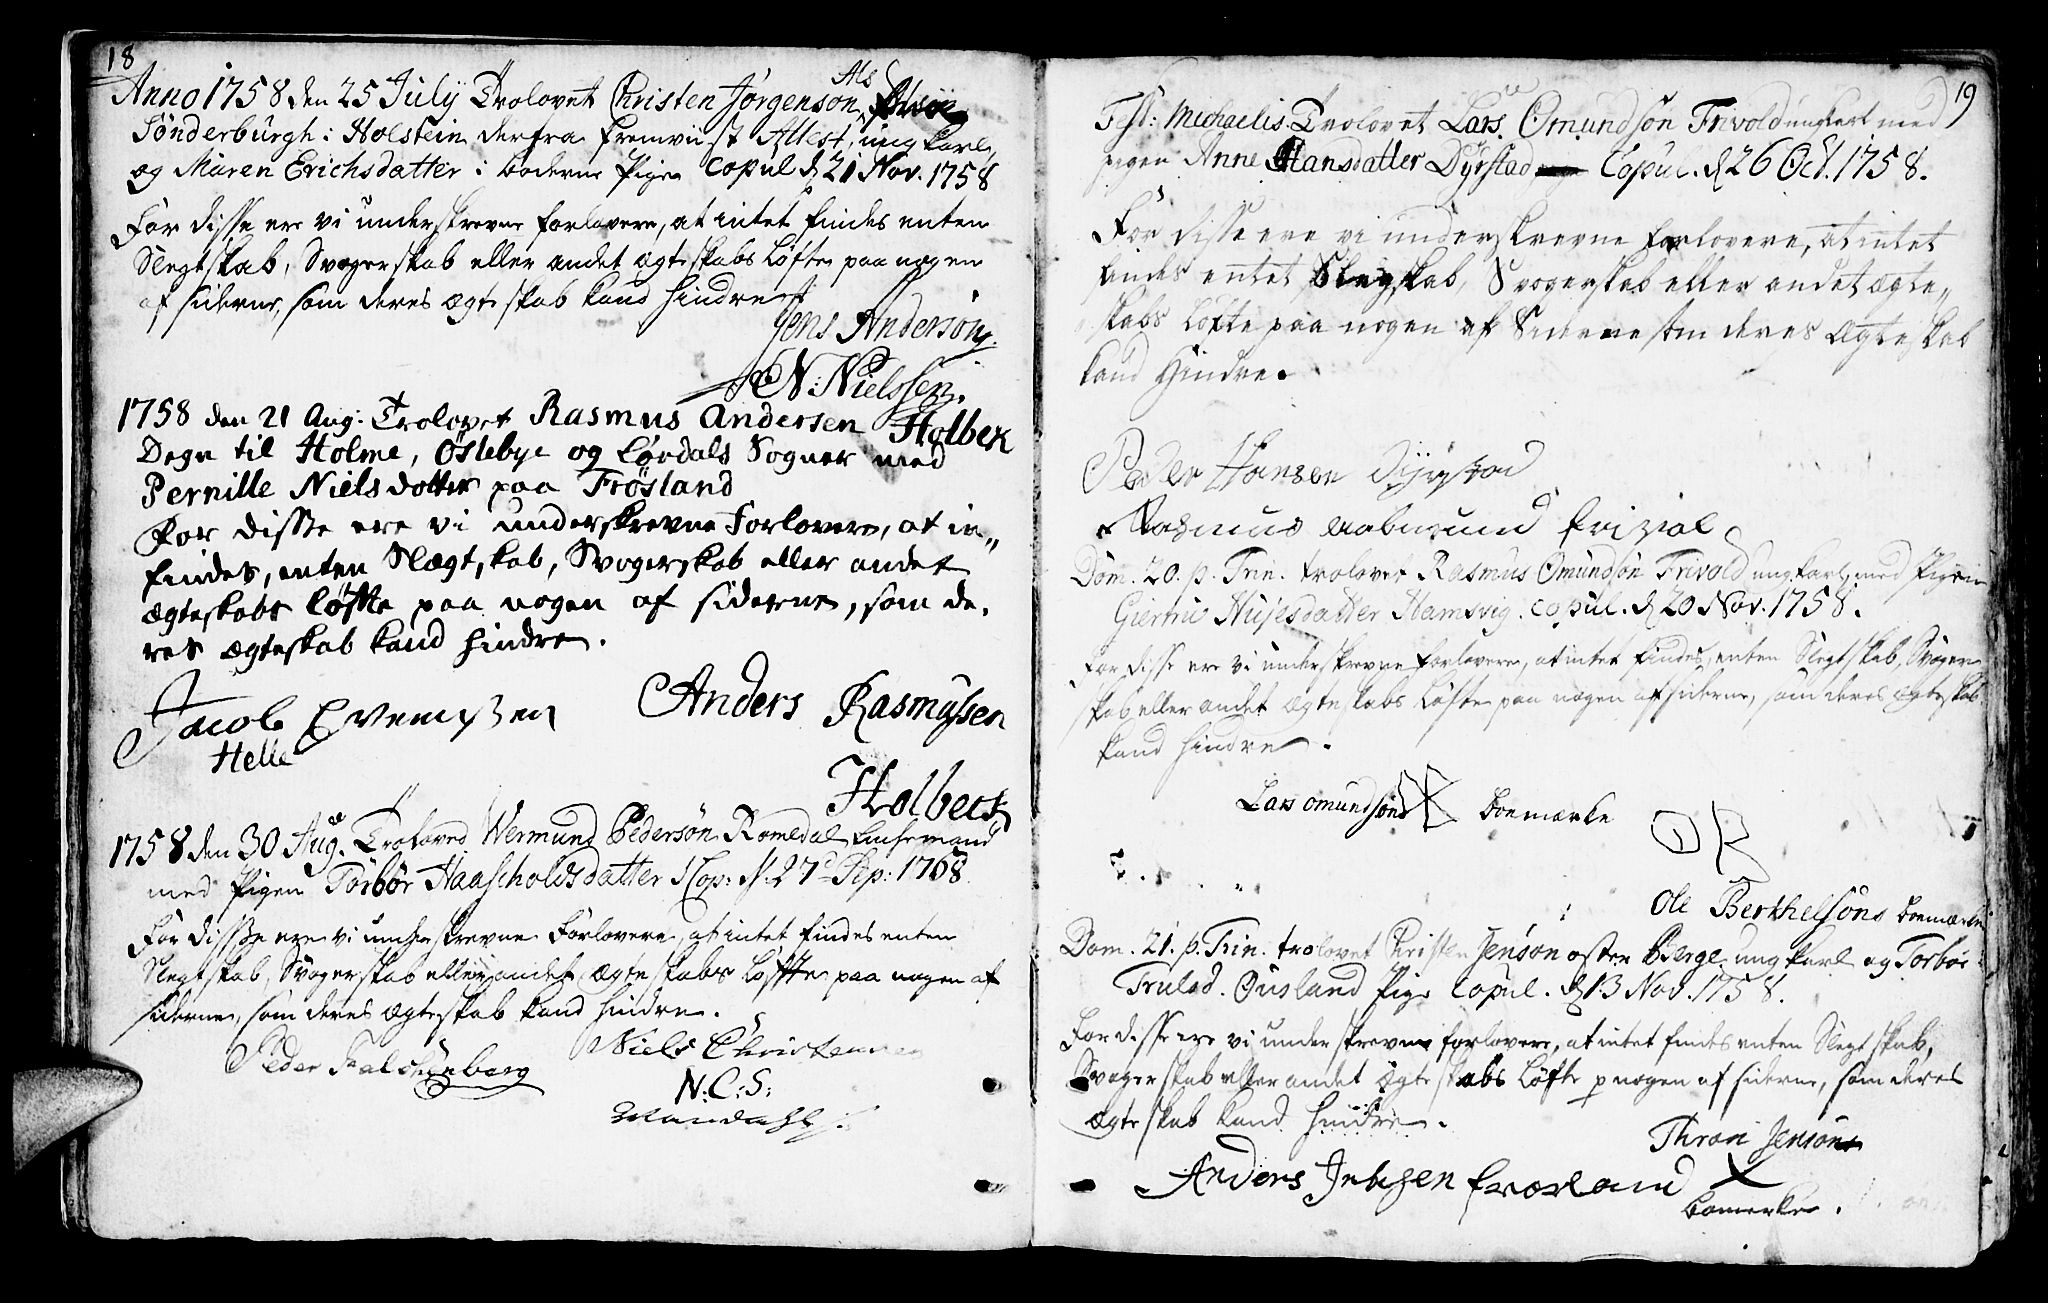 18
Anno 1758 den 25 July Trolovet Christen Jörgenson Als
Sönderburgh i Holstein derfra fremviist Attest, ungkarl,
og Maren Erichsdatter i boderne Pige Copul d 21 Nov. 1758
For disse ere vi underskrevne forlovere, at intet findes enten
Slegtskab, Svogerskab eller andet ægteskabs Löfte paa nogen
af siderne, som deres ægteskab kand hindre
Jens Anderson
N: Nielssen.
1758 den 21 Aug: Trolovet Rasmus Andersen Holbek
Degn til Holme, Öslebye og Løvdals Sogner med
Pernille Nielsdotter paa Frösland
For disse ere vi underskrevne Forlovere, at in„
findes, enten Slægtskab, Svogerskab eller andet
ægteskabs løfte paa nogen af siderne, som de,
res ægteskab kand hindre.
Jacob Evensen
Helle
Anders Rasmussen
Holbeck
1758 den 30 Aug. Troloved Wermund Pedersön Romedal Enkemand
med Pigen Torbör Haascholdsdatter Cop: d: 27 Sep: 1768
For disse ere vi underskrevne Forlovere, at intet findes enten
Slegtskab, Svogerskab eller andet ægteskabs Løfte paa nogen af
siderne, som deres ægteskab kand hindre.
Peder Falckenberg
Niels Christensen
N: C: S:
Mandahl
19
Fest: Michaelis. Trolovet Lars Omundsön Trivold ungkarl med
pigen Anne Hansdatter Dyrstad Copul. d 26 Oct. 1758.
For disse ere vi underskrevne forlovere, at intet
findes entet Slegskab, Svogerskab eller andet ægte„
skabs Löfte paa nogen af Siderne som deres Ægteskab
kand Hindre.
Peder Hansen Dyrstad
Rasmus Aabmund
Dom. 20. p. Trin. trolovet Rasmus Omundsön Trivold ungkarl, med Pigen
Giertru Hujesdatter Hamsvig. copul. d 20 Nov. 1758.
For disse ere vi underskrevne forlovere, at intet findes, enten Slegtskab, Svoger
skab eller andet ægteskabs Löfte paa nogen af siderne, som deres ægteskab
kand hindre.
Lars omundsöns boemærke
OB
Ole Berthelsöns boemærke
Dom. 21. p. Trin. trolovet Christen Jenson osten Berge ungkarl og Torbör
Trulsd. Ousland Pige Copul. d 13 Nov. 1758.
For disse ere vi underskrevne forlovere, at intet findes enten Slegtskab,
Svogerskab eller andet Ægteskabs Löfte p nogen af siderne, som deres
Ægteskab kand hindre.
Thron Jensons
Anders Jebsen
X
bomerke.